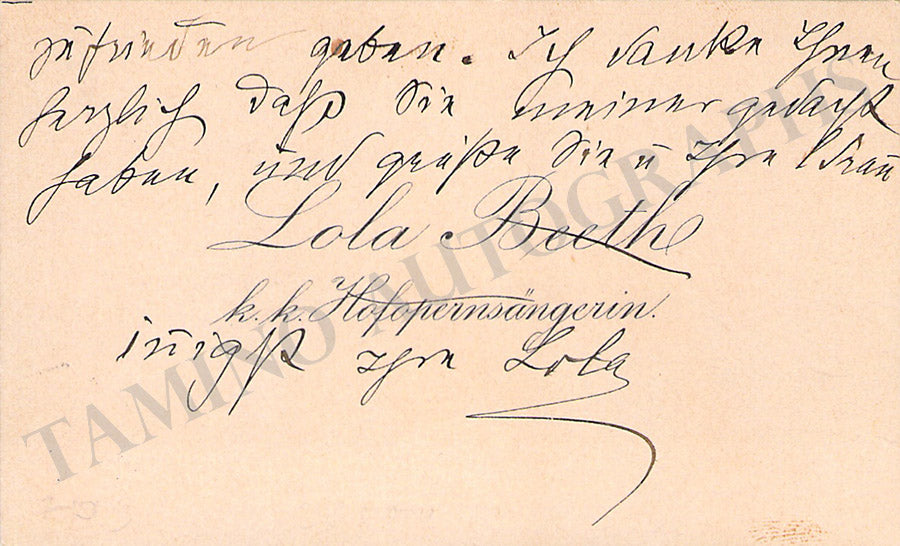 zufrieden geben. Ich danke Ihnen
herzlich daß Sie meiner gedacht
haben, und grüße Sie u Ihre Frau
Lola Beeth
k. k. Hofopernsängerin.
iñigst Ihre Lola
TAMINO AUTOGRAPHS